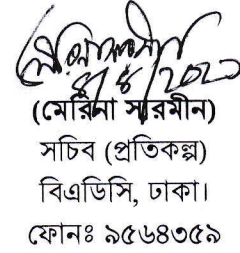 (মেরিনা সারমীন)
সচিব (প্রতিকল্প)
বিএডিসি, ঢাকা।
ফোনঃ ৯৫৬৪৩৫৯